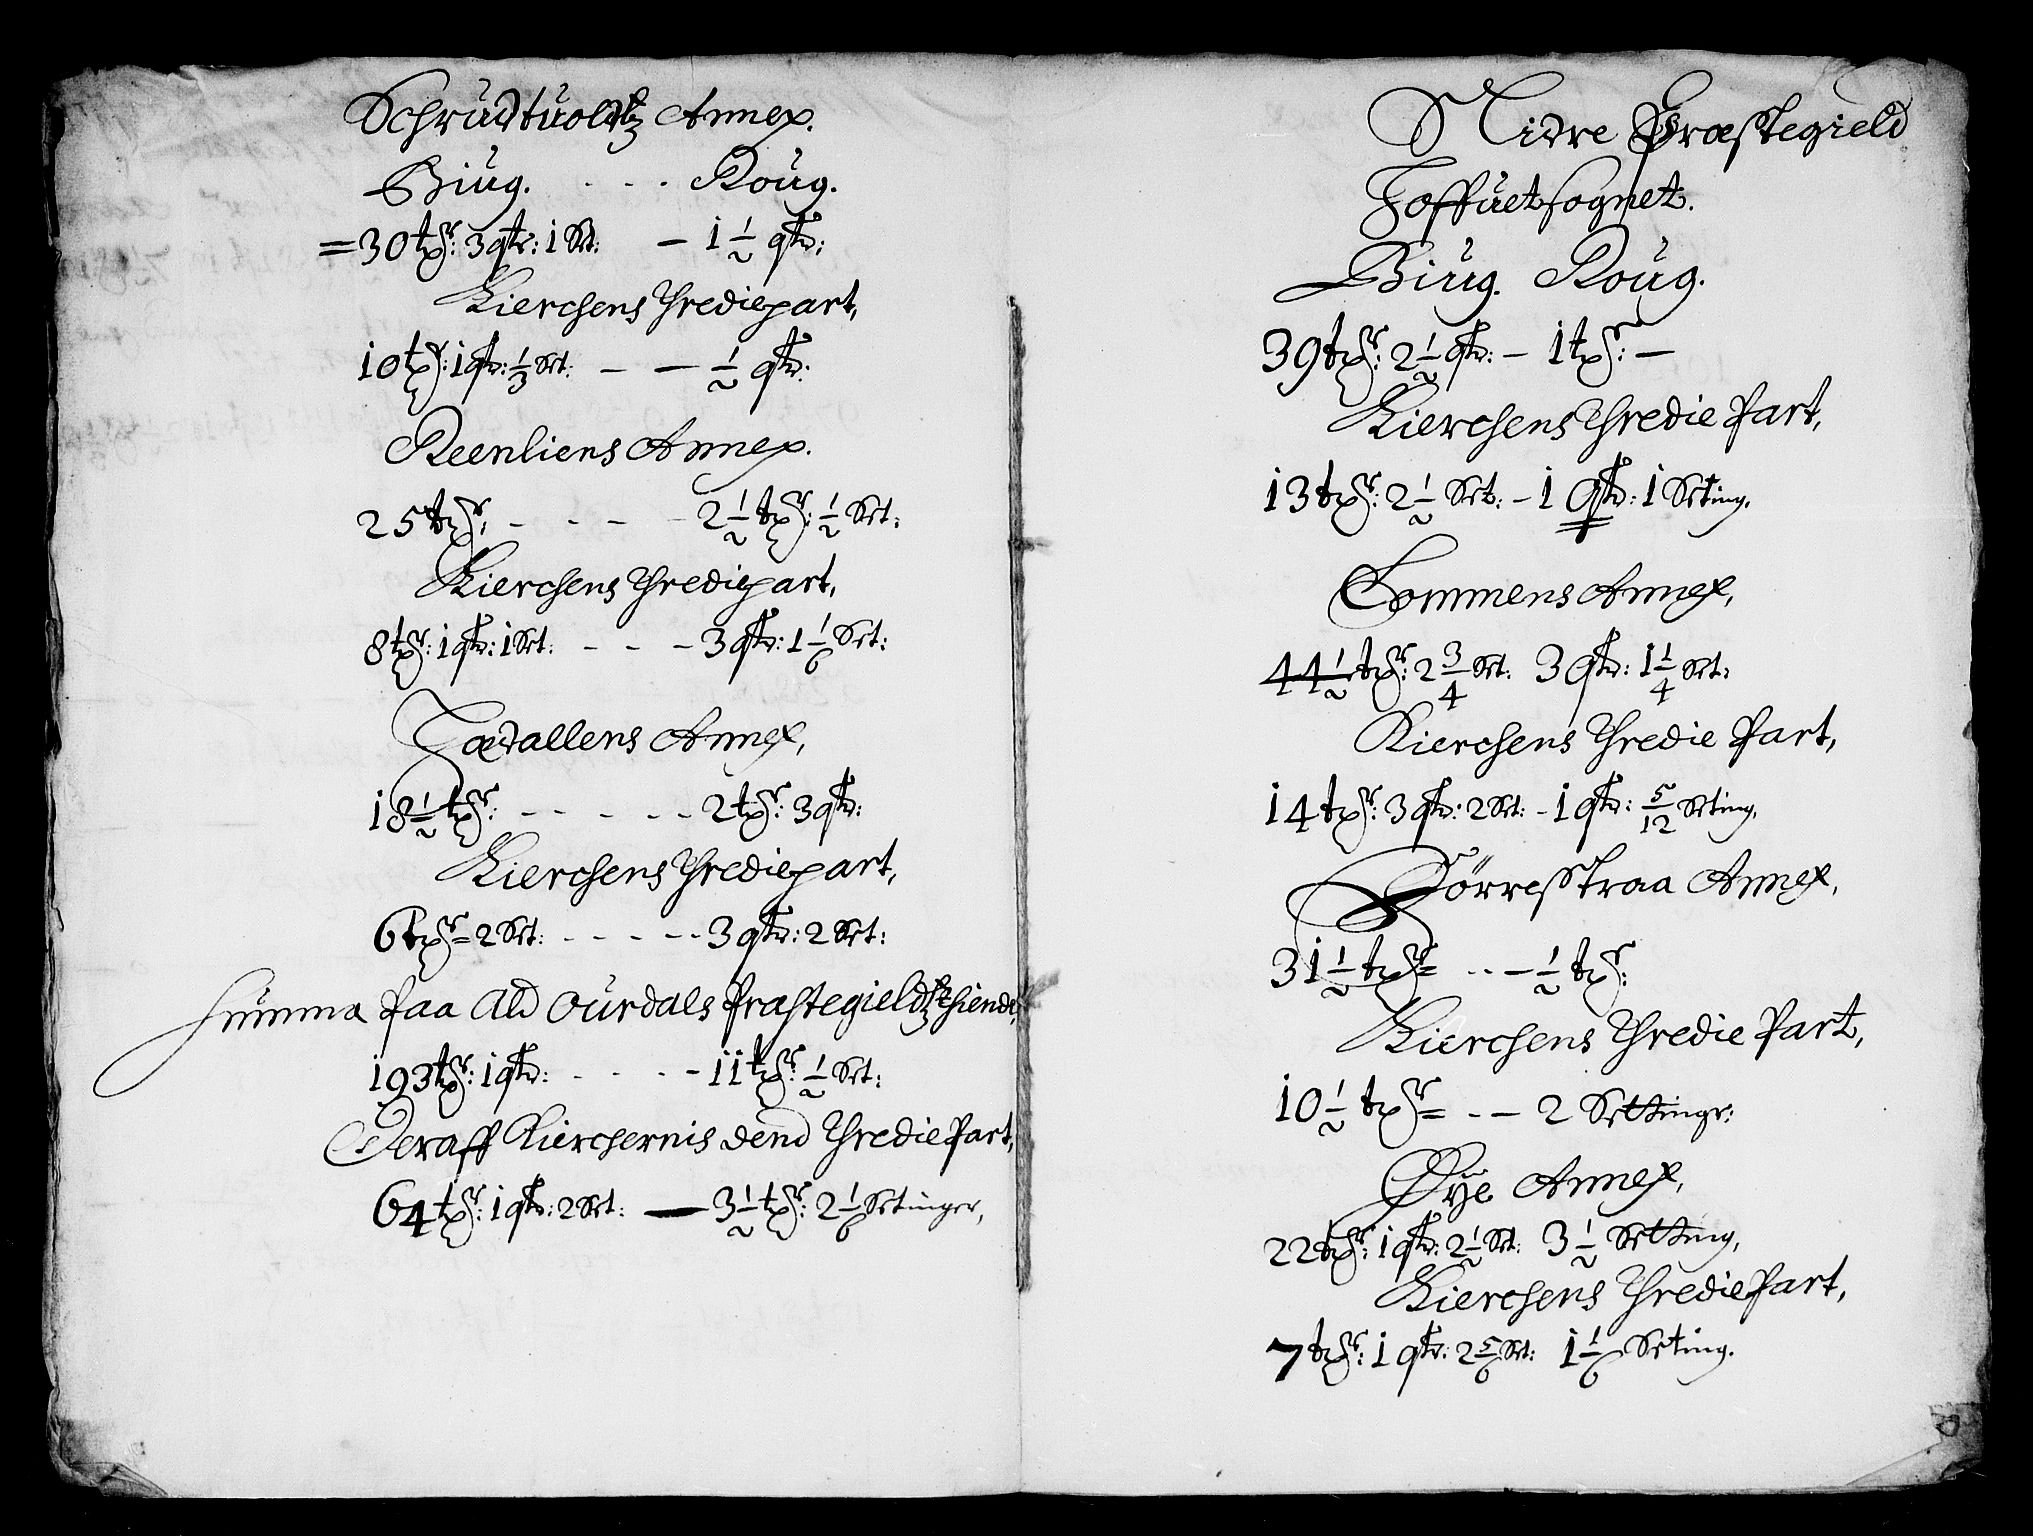 Schrudtuoldtz Annex.
Biug. - - - Roug.
= 30 tr: 3 qtr: 1 Set: — 1 1/2 qtr:
Kierchens Thrediepart,
10 tr: 1 qtr: 1/3 Set: — — 1/2 qtr:
Reenliens Annex.
25 tr: - - - - 2 1/2 tr: 1/2 Set:
Kierchens Thrediepart,
8 tr: 1 qtr: 1 Set: - - - 3 qtr: 1 1/6 Set:
Tædallens Annex,
18 1/2 tr: - - - - - 2 tr: 3 qtr:
Kierchens Thrediepart,
6 tr = 2 Set: - - - - - 3 qtr: 2 Set:
Summa paa Ald Ourdals præstegieldtz thiende,
193 tr: 1 qtr: - - - - 11 tr: 1/2 Set:
Deraff Kierchernis dend Thredie Part,
64 tr: 1 qtr: 2 Set: — 3 1/2 tr: 2 1/6 Setinger,
Slidre Præstegield
Hoffuetsognet.
Biug. Roug.
39 tr: 2 1/2 qtr: — 1 tr: —
Kierchens Thredie Part,
13 tr: 2 1/2 Set: - 1 qtr: 1 Seting.
Lommens Annex,
44 1/2 tr: 2 3/4 Set: 3 qtr: 1 1/4 Set:
Kierchens Thredie Part,
14 tr: 3 qtr: 2 Set: - 1 qtr: 5/12 Seting,
Hörresstraa Annex,
31 1/2 tr = - - — 1/2 tr:
Kierchens Thredie Part,
10 1/2 tr = - — 2 Settingr:
Øye Annex,
22 tr: 1 qtr: 2 1/2 Set: 3 1/2 Setting,
Kierchens Thredie Part,
7 tr: 1 qtr: 2 5/6 Set: 1 1/6 Seting.